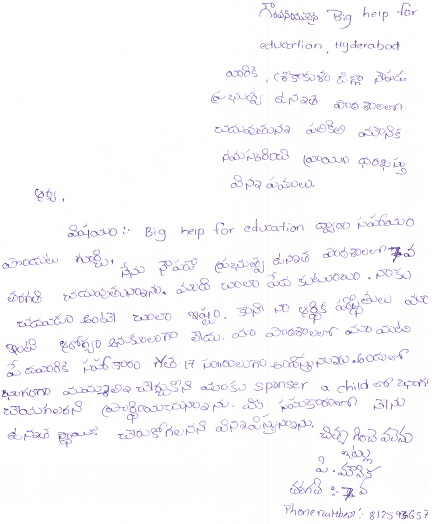 గౌరవనీయులైన Big help for
education, Hyderabad
వారికి, శ్రీకాకుళం జిల్లా నౌపడ
ప్రభుత్వ ఉన్నత పాఠశాలలో
చదువుతున్న మౌనిక
నమస్కరించి వ్రాయు
విన్నపములు.
ఆర్య,
విషయం :- Big help for education ద్వారా సహాయం
పొందుట గుర్చి,
నేను నౌపడ ప్రభుత్వ ఉన్నత పాఠశాలలో 7వ
తరగతి చదువుతున్నాను. మాది చాలా పేద కుటుంబం. నాకు
చదువు అంటే చాలా ఇష్టం. కానీ నా ఆర్థిక పరిస్థితులు మా
ఇంటి అనుకూలంగా లేదు. మా పాఠశాలలో మా వంటి
పేదవారికి సహాకారం గత 17 సంవత్సరాలుగా అందిస్తున్నారు. అందులో
భాగంగా చేర్చుకొని మాకు sponser a child లో
చేయగలరని ప్రార్థించుచున్నాను. మీ సహకారంతో నేను
ఉన్నత చేరుకోగలనని విన్నవిస్తున్నాను.
చిత్తగించవలెను
ఇట్లు
పి. మౌనిక
తరగతి :- 7వ
Phone number :- 812593657